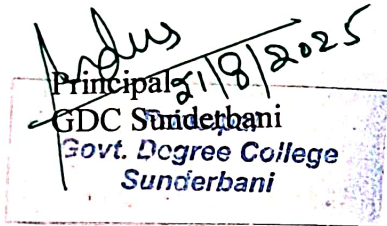 21/8/2025
Principal
GDC Sunderbani
Govt. Degree College
Sunderbani